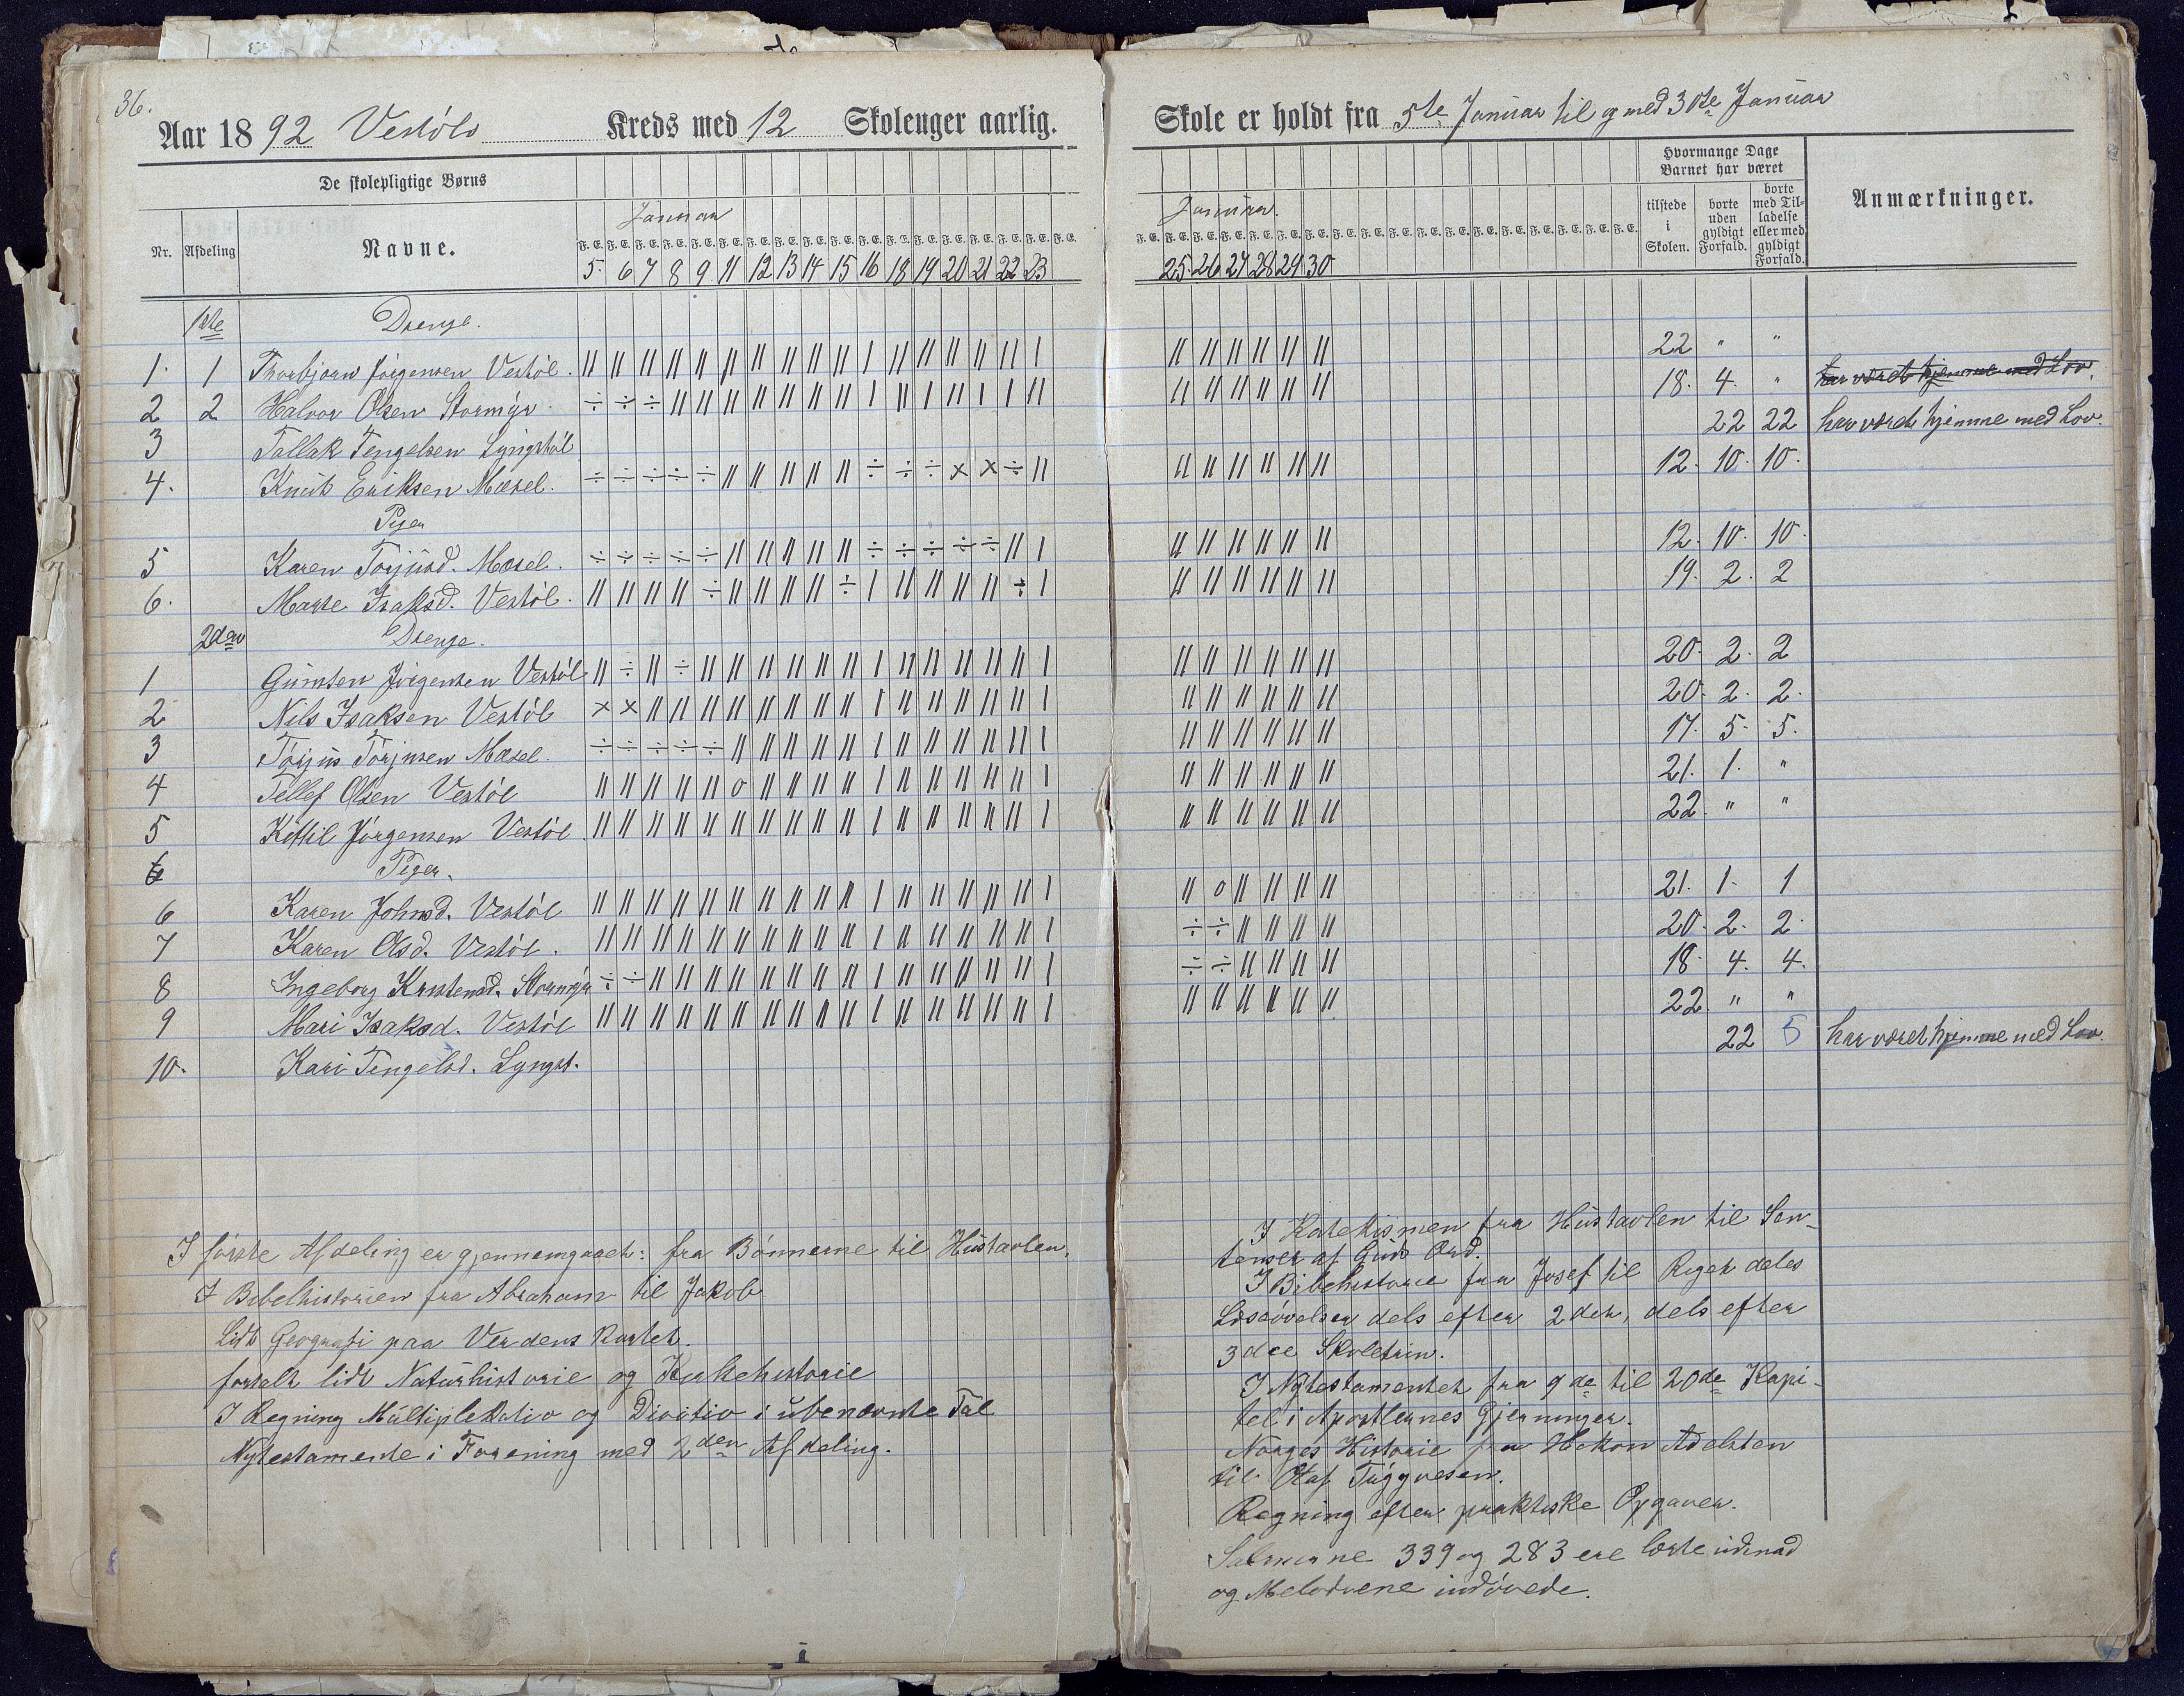 36.
Aar 1892 Vestöls Kreds med 12 Skolenger aarlig.
De skolepligtige Børns
Januar
Nr. Afdeling Navne.
F. E. F. E. F. E. F. E. F. E. F. E. F. E. F. E. F. E. F. E. F. E. F. E. F. E. F. E. F. E. F. E. F. E. F. E.
5. 6 7 8 9 11 12 13 14 15 16 18 19 20 21 22 23
1ste Drenge.
1. 1 Thorbjørn Jörgensen Vestöl. || || || || || || || || || || | || || || || || |
2 2 Halvor Olsen Stormyr. ÷ ÷ ÷ || || || || || || || | || | || | | ||
3 Tallak Tengelsen Lyngstöl
4. Knut Eriksen Mæsel. ÷ ÷ ÷ ÷ ÷ || || || || || ÷ ÷ ÷ × × ÷ ||
Piger
5 Karen Torjusd. Mæsel. ÷ ÷ ÷ ÷ ÷ || || || || || ÷ ÷ ÷ ÷ ÷ || |
6. Marte Isaksd. Vestöl. || || || || ÷ || || || || ÷ | || || || || ÷ |
2den Drenge.
1 Gunsten Jörgensen Vestöl || ÷ || ÷ || || || || || || | || || || || || |
2 Nils Isaksen Vestöl × × || || || || || || || || | || || || || || |
3 Torjus Torjusen Mæsel. ÷ ÷ ÷ ÷ ÷ || || || || || | || || || || || |
4 Tellef Olsen Vestöl || || || || || o || || || || | || || || || || |
5 Kittil Jörgensen Vestöl. || || || || || || || || || || | || || || || || |
6 Piger.
6 Karen Johnsd. Vestöl || || || || || || || || || || | || || || || || |
7 Karen Olsd. Vestöl. || || || || || || || || || || | || || || || || |
8 Ingeborg Kristensd. Stormyr ÷ ÷ || || || || || || || || | || || || || || |
9 Mari Isaksd. Vestöl || || || || || || || || || || | || || || || || |
10. Kari Tengelsd. Lyngst.
I förste Afdeling er gjennemgaaet: fra Bönnerne til Hustavlen.
I Bibelhistorien fra Abraham til Jakob
Lidt Geografi paa Verdens Kartet.
fortalt lidt Naturhistorie og Kirkehistorie
I Regning Multiplikatio og Divitio i ubenævnte Tal
Nytestamente i Forening med 2den Afdeling.
Skole er holdt fra 5te Januar til og med 30te Januar
Hvormange Dage Barnet har været
Januar.
tilstede i Skolen. borte uden gyldigt Forfald. borte med Tilladelse eller med gyldigt Forfald. Anmærkninger.
F. E. F. E. F. E. F. E. F. E. F. E. F. E. F. E. F. E. F. E. F. E. F. E. F. E. F. E. F. E. F. E. F. E. F. E.
25. 26 27 28 29 30
|| || || || || || 22 " "
|| || || || || || 18. 4. " har været hjemme med Lov.
22 22 har været hjemme med Lov.
|| || || || || || 12. 10. 10.
|| || || || || || 12. 10. 10.
|| || || || || || 19. 2. 2
|| || || || || || 20. 2. 2
|| || || || || || 20. 2. 2.
|| || || || || || 17. 5. 5.
|| || || || || || 21. 1. "
|| || || || || || 22. " "
|| o || || || || 21. 1. 1
÷ ÷ || || || || 20. 2. 2.
÷ ÷ || || || || 18. 4. 4.
|| || || || || || 22. " "
22 5 har været hjemme med Lov.
I Katekismen fra Hustavlen til Sen-
tenser af Guds Ord.
I Bibelhistorie fra Josef til Riget deles
Læseövelser dels efter 2det, dels efter
3die Skoletrin.
I Nytestamentet fra 9de til 20de Kapi-
tel i Apostlernes Gjerninger.
Norges Historie fra Hakon Adelsten
til Olaf Tryggvesen.
Regning efter praktiske Opgaver.
Salmerne 339 og 283 ere lærte udenad
og Melodiene indövede.